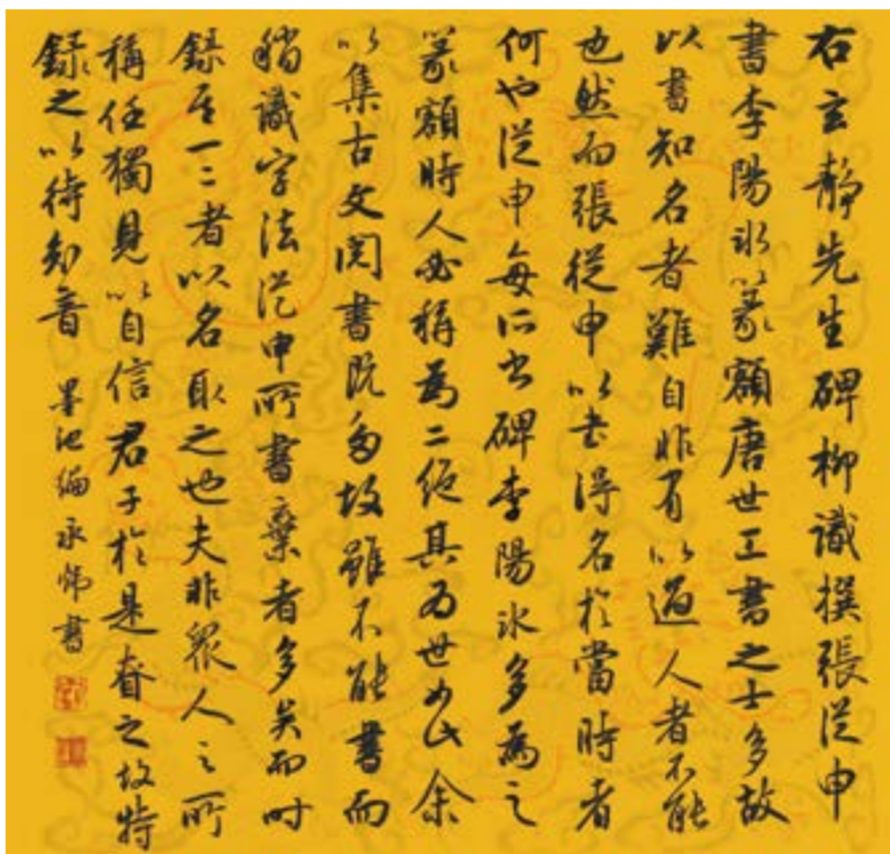 右玄靜先生碑柳識撰張從申
書李陽冰篆額唐世工書之士多故
以書知名者難自非有以過人者不能
也然而張從申以書得名於當時者
何也從申每所書碑李陽冰多為之
篆額時人必稱為二絕其為世如此余
以集古文閱書既多故雖不能書而
稍識字法從申所書棄者多矣而時
錄其一二者以名取之也夫非眾人之所
稱任獨見以自信君子於是慎之故特
錄之以待知音
墨池編 永 書